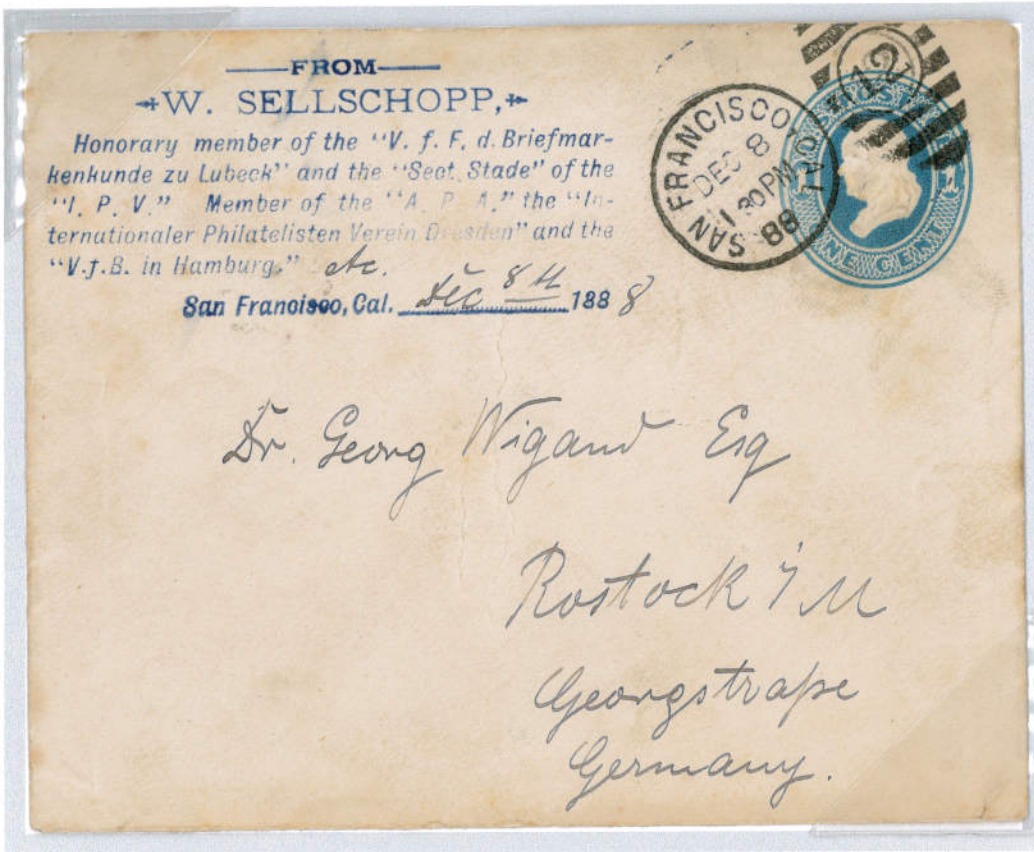 FROM
W. SELLSCHOPP,
Honorary member of the "V. f. F. d. Briefmar-
kenkunde zu Lubeck" and the "Sect. Stade" of the
"I. P. V." Member of the "A. P. A." the "In-
ternationaler Philatelisten Verein Dresden" and the
"V.f.B. in Hamburg." etc.
San Francisco, Cal. Dec 8th 1888
SAN FRANCISCO, CAL
DEC 8
11 30 PM
88
12
ONE CENT
1
Dr. Georg Wigand Esq
Rostock i/M
Georgstraße
Germany.